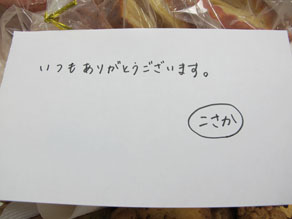 いつもありがとうございます。
こさか